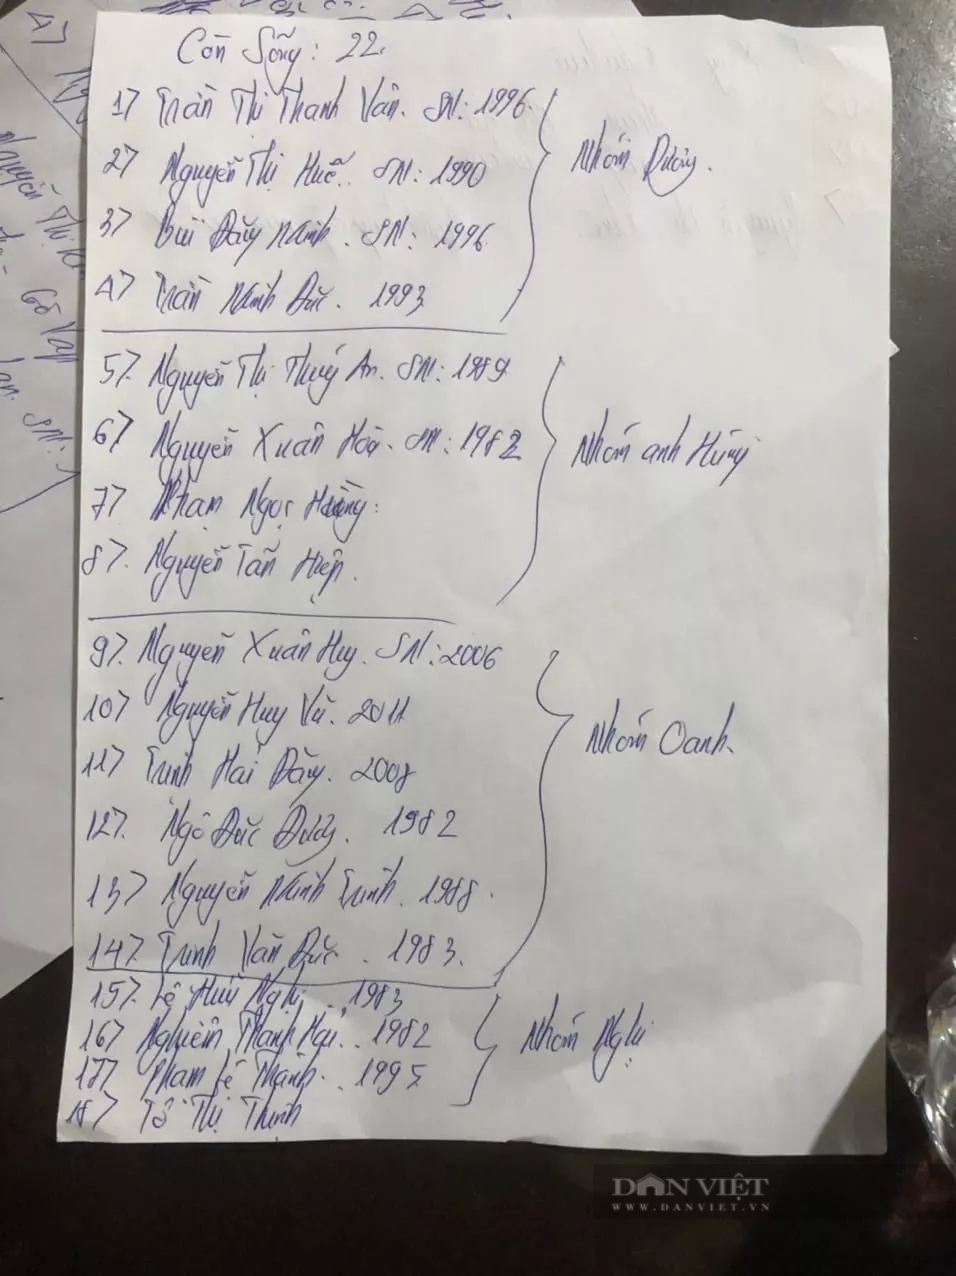 Còn Sống: 22.
1> Trần Thị Thanh Vân. SN: 1996.
2> Nguyễn Thị Huế. SN: 1990
3> Bùi Đăng Mạnh. SN: 1996.
4> Trần Mạnh Đức. 1993
Nhóm Dương.
5>. Nguyễn Thị Thúy An. SN: 1989
6> Nguyễn Xuân Hòa. SN: 1982
7> Phạm Ngọc Hường.
8>. Nguyễn Tấn Hiệp.
Nhóm anh Hùng
9>. Nguyễn Xuân Huy. SN: 2006
10> Nguyễn Huy Vũ. 2011
11> Trịnh Hải Đăng. 2008
12>. Ngô Đức Dương. 1982
13> Nguyễn Mạnh Trình. 1988.
14>. Trịnh Văn Đức. 1983.
Nhóm Oanh.
15>. Lê Hữu Nghị. 1983
16> Nghiêm Thanh Hải. 1982
17> Phạm Lê Thành. 1995
18> Tô Thị Trinh
Nhóm Nghị
DÂN VIỆT
WWW.DANVIET.VN
Nguyễn Thị
Gò Vấp
SN: